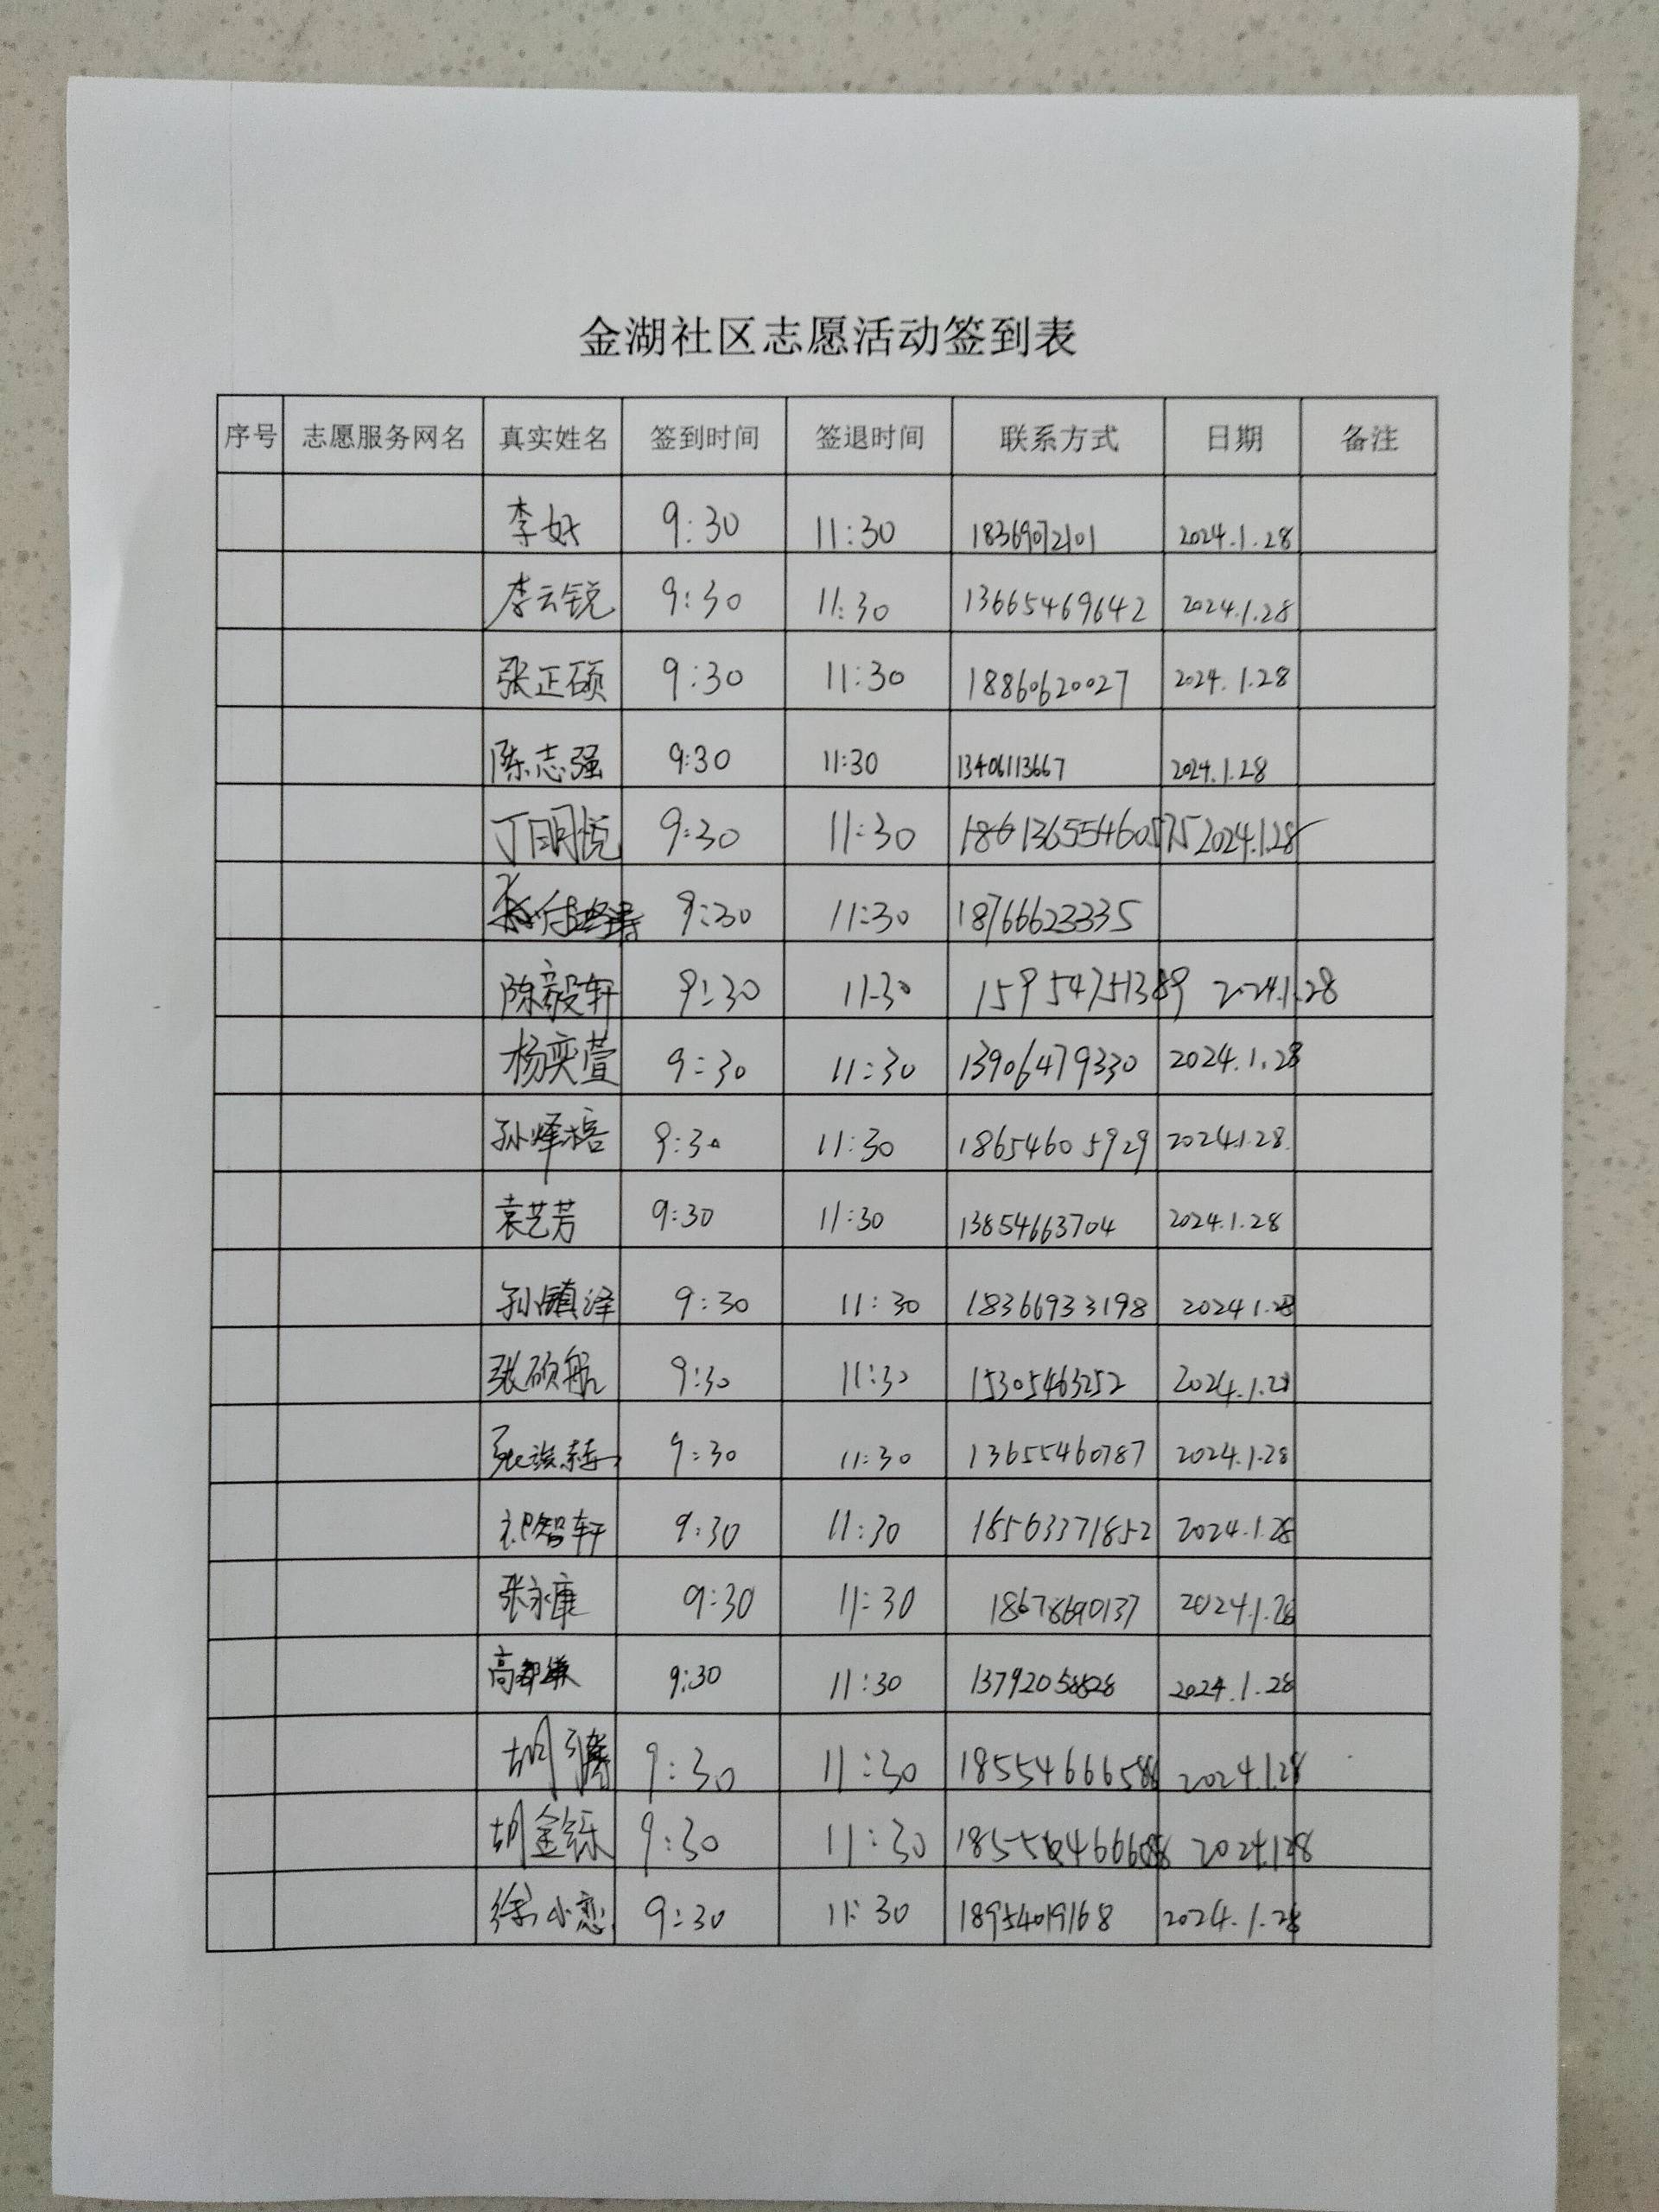 金湖社区志愿活动签到表
序号 志愿服务网名 真实姓名 签到时间 签退时间 联系方式 日期 备注
李妤 9:30 11:30 18369072101 2024.1.28
李云锐 9:30 11:30 13665469642 2024.1.28
张正硕 9:30 11:30 18860620027 2024.1.28
陈志强 9:30 11:30 13406113667 2024.1.28
丁明悦 9:30 11:30 13655460575 2024.1.28
9:30 11:30 18766623335
陈毅轩 9:30 11:30 15954751389 2024.1.28
杨奕萱 9:30 11:30 13906479330 2024.1.28
孙烽榕 9:30 11:30 18654605929 2024.1.28
袁艺芳 9:30 11:30 13854663704 2024.1.28
孙镇泽 9:30 11:30 18366933198 2024 1.28
张硕航 9:30 11:30 15305463252 2024.1.28
张 9:30 11:30 13655460787 2024.1.28
祀智轩 9:30 11:30 18563371852 2024.1.28
张永康 9:30 11:30 18678690137 2024.1.28
高 9:30 11:30 13792058828 2024.1.28
胡 9:30 11:30 18554666586 2024.1.28
胡金铄 9:30 11:30 2024.1.28
徐小恋 9:30 11:30 18954019168 2024.1.28